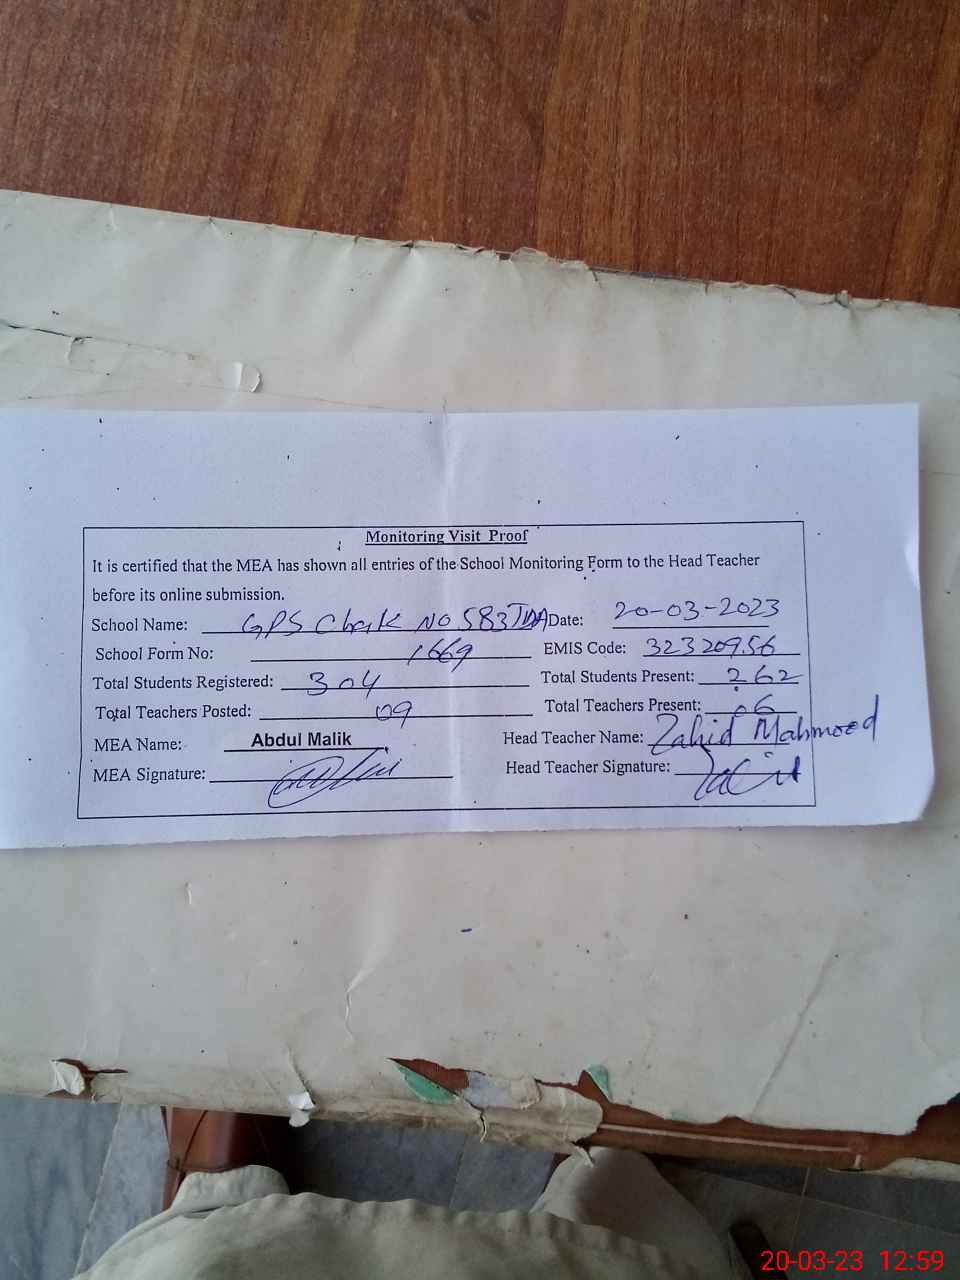 Monitoring Visit Proof
It is certified that the MEA has shown all entries of the School Monitoring Form to the Head Teacher
before its online submission.
School Name: GPS Chak No 583 TDA Date: 20-03-2023
School Form No: 1669 EMIS Code: 32320956
Total Students Registered: 304 Total Students Present: 262
Total Teachers Posted: 09 Total Teachers Present: 06
MEA Name: Abdul Malik Head Teacher Name: Zahid Mahmood
MEA Signature: Head Teacher Signature:
20-03-23 12:59